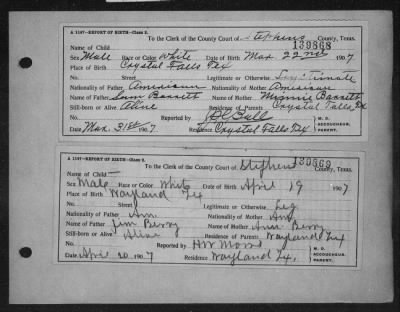 A 1197—REPORT OF BIRTH—Class 2.
To the Clerk of the County Court of Stephens County, Texas.
Name of Child 139868
Sex Male Race or Color White Date of Birth Mar 22nd 1907
Place of Birth Crystal Falls Tex
No. Street Legitimate or Otherwise Legitimate
Nationality of Father American Nationality of Mother American
Name of Father Sam Barrett Name of Mother Minnie Barrett
Still-born or Alive Alive Residence of Parents Crystal Falls Tex
Reported by Ball M. D.
ACCOUCHEUR.
PARENT.
Date Mar. 31st 1907 Residence Crystal Falls Tex
A 1197—REPORT OF BIRTH—Class 2.
To the Clerk of the County Court of Stephens County, Texas.
Name of Child 139869
Sex Male Race or Color White Date of Birth April 19 1907
Place of Birth Wayland Tex
No. Street Legitimate or Otherwise Leg
Nationality of Father Am Nationality of Mother Am
Name of Father Jim Berry Name of Mother Berry
Still-born or Alive Alive Residence of Parents Wayland Tex
Reported by HW M. D.
ACCOUCHEUR.
PARENT.
Date Apr 20 1907 Residence Wayland Tex.